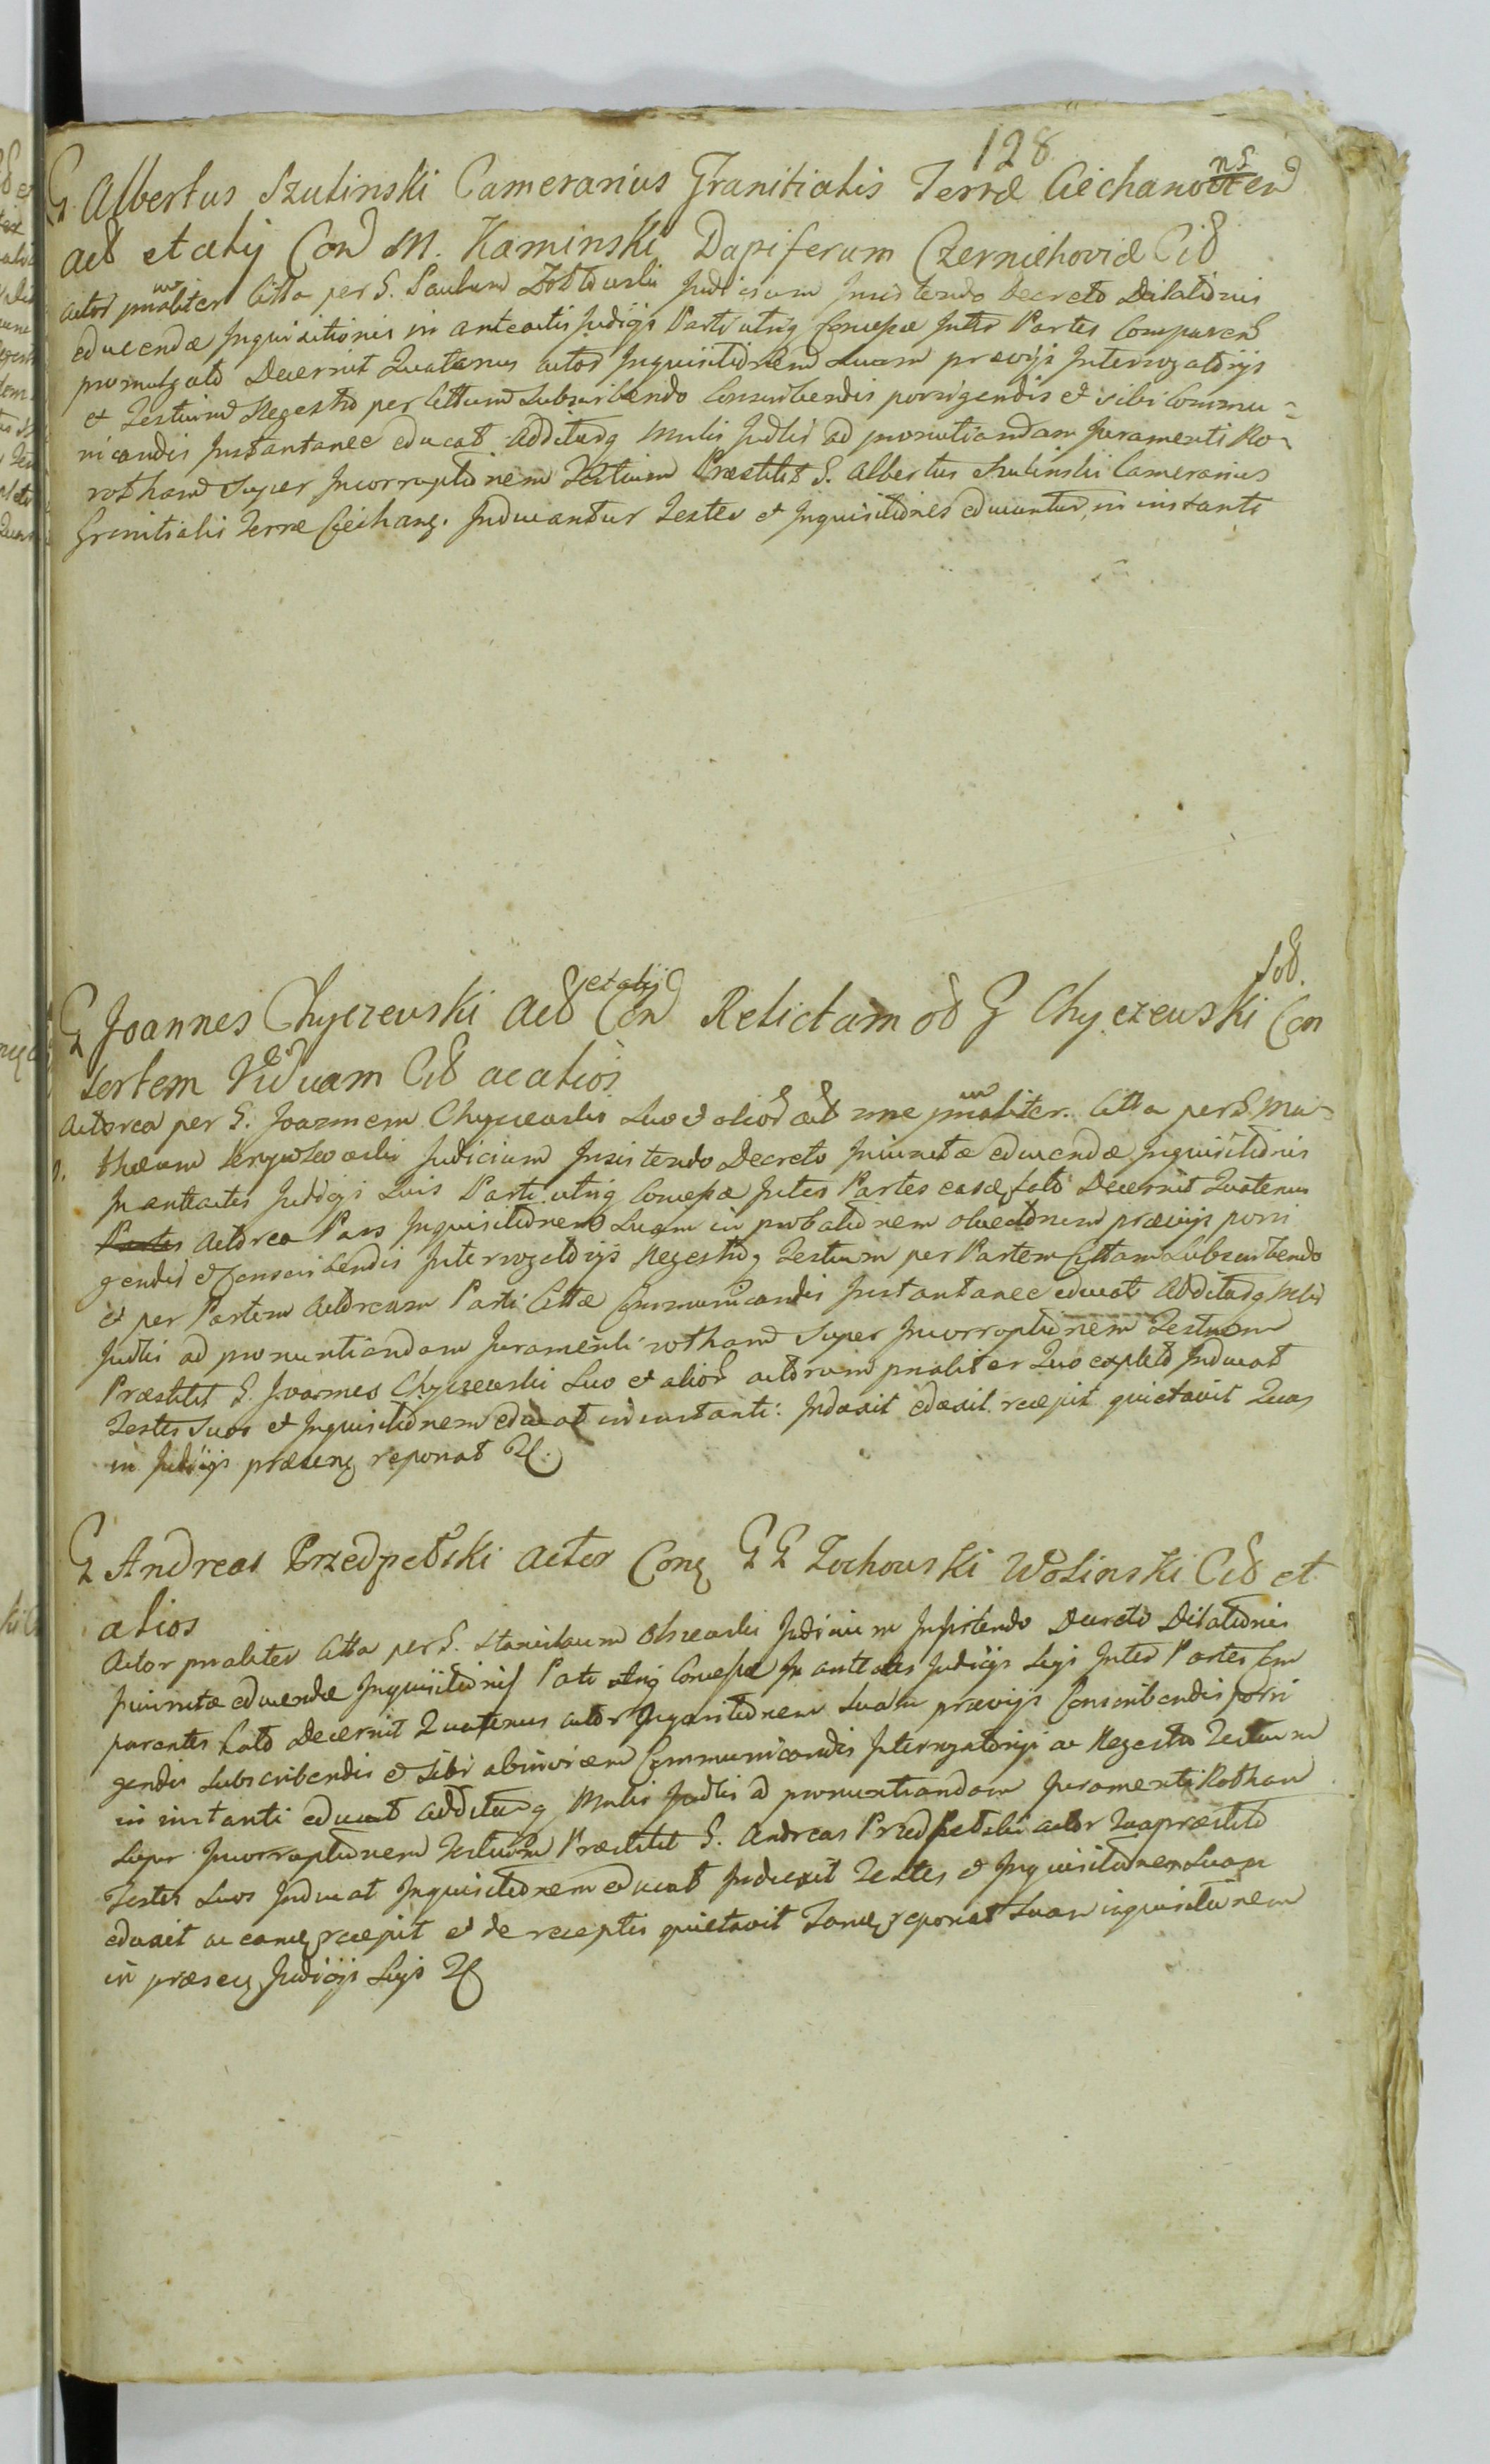 128
G Albertus Szulinski Camerarius Granitialis Terræ Ciechanoven
ns
act et alij Con M. Kaminski Dapiferum Czerniehoviæ Cit
actor pnaliter Citta per G. Paulum Judicium Insistendo Decreto Dilationis
educendæ Inquisitionis in anteactis Judicijs Parti utriq Concessæ Inter Partes Comparen
promulgato Decernit Quatenus actor Inquisitionem Suam prævijs Interrogatorijs
et Testium Regestro per Cittum Subscribendo Conscribendis porrigendis et sibi Commu=
nicandis Instantanee educat additurq Mnlis Judlis ad pronutiandam Juramenti Ro=
rotham Super Incorruptionem Testium Præstitit G. Albertus Szulinski Camerarius
Granitialis Terræ Ciechang. Inducantur Testes et Inquisitiones educantur in instanti
G Joannes Chyczewski act et alij Con Relictam od G Chyczewski Con
sertem Viduam Cit ac alios
Actorea per G. Joannem Chyczewski Suo et alior act nne pnaliter. Citta per G. Ma=
thæum Judicium Insistendo Decreto Iniunctæ educendæ Inquisitionis
In anteactis Judicijs Suis Parti utriq Concessæ Inter Partes easdq lato Decernit Quatenus
Partes Actorea Pars Inquisitionem Suam in probationem obiectorum prævijs porri
gendis et Conscribendis Interrogatorijs Regestroq Testium per Partem Cittam Subscribendo
et per Partem Actoream Parti Cittæ Communicandis Instantanee educat additurq Mlis
Judlis ad pronuntiandam Juramenti rotham Super Incorruptionem Testium
Præstitit G. Joannes Chyczewski Suo et alior actorum pnaliter Quo expleto Inducat
Testes Suos et Inquisitionem educat in instanti: Induxit eduxit recepit quietavit Quas
in Judicijs præsenq reponat
G Andreas Przedpełski actor Conq GG Zochowski Wolinski Cit et
alios
Actor pnaliter Citta per G. Stanislaum Judicium Insistendo Decreto Dilationis
Iniunctæ educendæ Inquisitionis Parti utriq Concessæ In anteactis Judicijs Suis Inter Partes Com
parentes lato Decernit Quatenus actor Inquisitionem Suam prævijs Conscribendis porri
gendis Subscribendis et Sibi abinvicem Communicandis Interrogatorijs ac Regestro Testium
in instanti educat additurq Mnlis Judlis ad pronuntiandam Juramenti Rotham
Super Incorruptionem Testium Præstitit G. Andreas Przedpełski actor Quo præstito
Testes Suos Inducat Inquisitionem educat Induxit Testes et Inquisitionem Suam
eduxit ac eamq recepit et de receptis quietavit Tandq reponat Suam inquisitionem
in præsenq Judicijs Suis